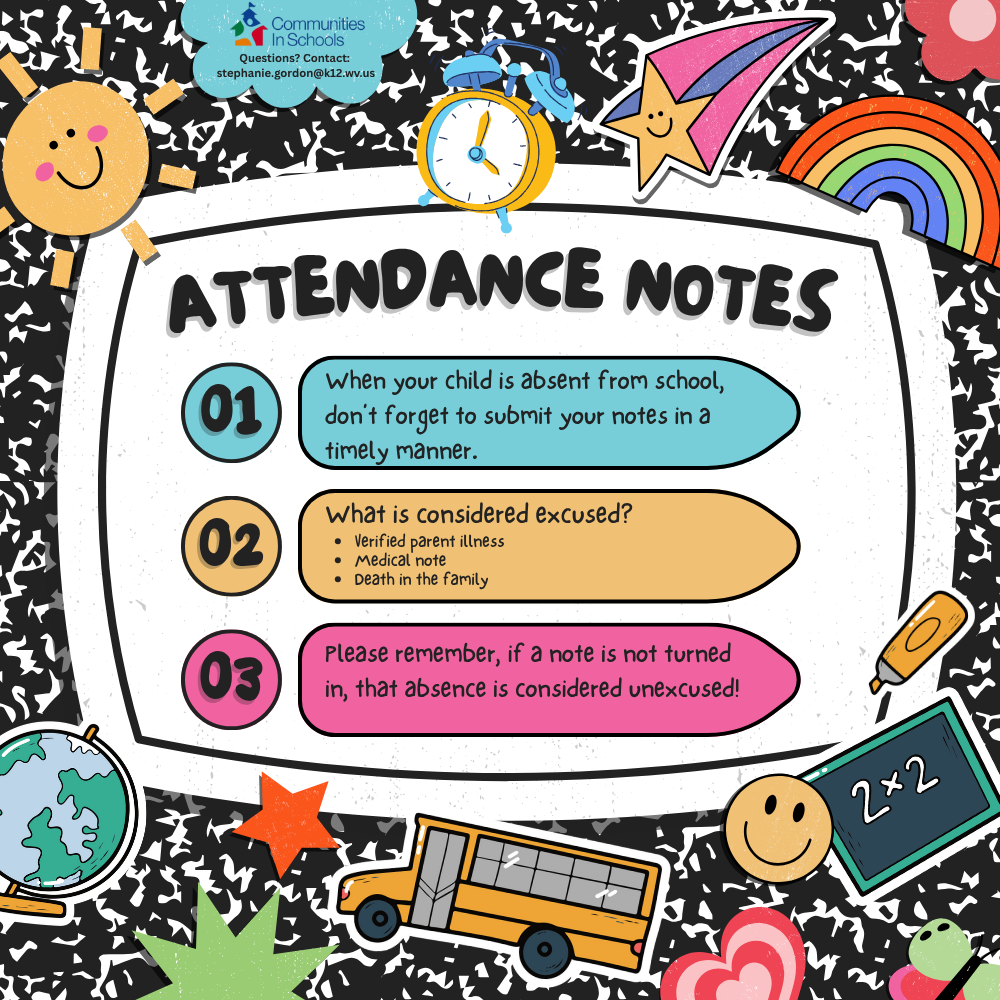 Communities
In Schools
Questions? Contact:
stephanie.gordon@k12.wv.us
ATTENDANCE NOTES
01
When your child is absent from school,
don't forget to submit your notes in a
timely manner.
02
What is considered excused?
• Verified parent illness
• Medical note
• Death in the family
03
Please remember, if a note is not turned
in, that absence is considered unexcused!
2×2